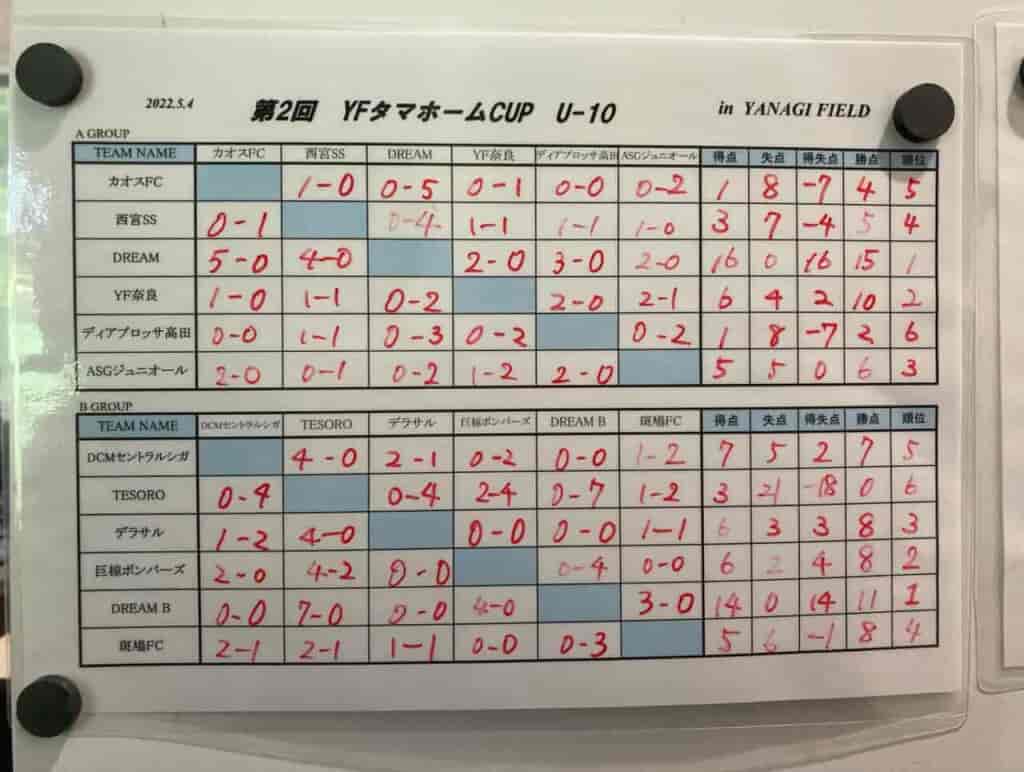 2022.5.4 第2回 YFタマホームCUP U-10 in YANAGI FIELD
A GROUP
TEAM NAME カオスFC 西宮SS DREAM YF奈良 ディアブロッサ高田 ASGジュニオール 得点 失点 得失点 勝点 順位
カオスFC 1-0 0-5 0-1 0-0 0-2 1 8 -7 4 5
西宮SS 0-1 0-4 1-1 1-1 1-0 3 7 -4 5 4
DREAM 5-0 4-0 2-0 3-0 2-0 16 0 16 15 1
YF奈良 1-0 1-1 0-2 2-0 2-1 6 4 2 10 2
ディアブロッサ高田 0-0 1-1 0-3 0-2 0-2 1 8 -7 2 6
ASGジュニオール 2-0 0-1 0-2 1-2 2-0 5 5 0 6 3
B GROUP
TEAM NAME DCMセントラルシガ TESORO デラサル 巨椋ボンバーズ DREAM B 斑鳩FC 得点 失点 得失点 勝点 順位
DCMセントラルシガ 4-0 2-1 0-2 0-0 1-2 7 5 2 7 5
TESORO 0-4 0-4 2-4 0-7 1-2 3 21 -18 0 6
デラサル 1-2 4-0 0-0 0-0 1-1 6 3 3 8 3
巨椋ボンバーズ 2-0 4-2 0-0 0-4 0-0 6 2 4 8 2
DREAM B 0-0 7-0 0-0 4-0 3-0 14 0 14 11 1
斑鳩FC 2-1 2-1 1-1 0-0 0-3 5 6 -1 8 4